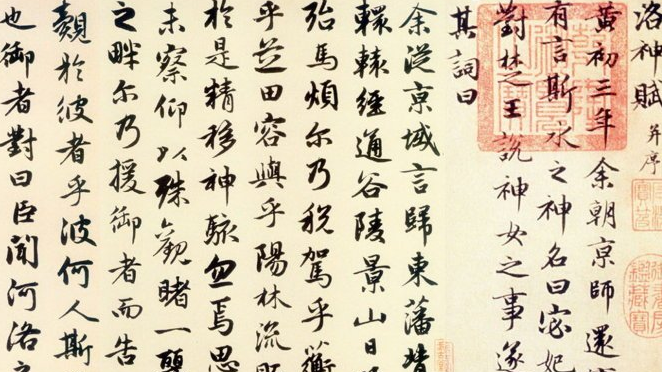 洛神賦 并序
黃初三年余朝京師還
有言斯水之神名曰宓妃
對楚王說神女之事遂
其詞曰
余從京域言歸東藩背
轘轅經通谷陵景山日
殆馬煩尔乃稅駕乎蘅
乎芝田容與乎陽林流
於是精移神駭忽焉思
未察仰以殊觀睹一麗
之畔尔乃援御者而告
覿於彼者乎彼何人斯
也御者對曰臣聞河洛之